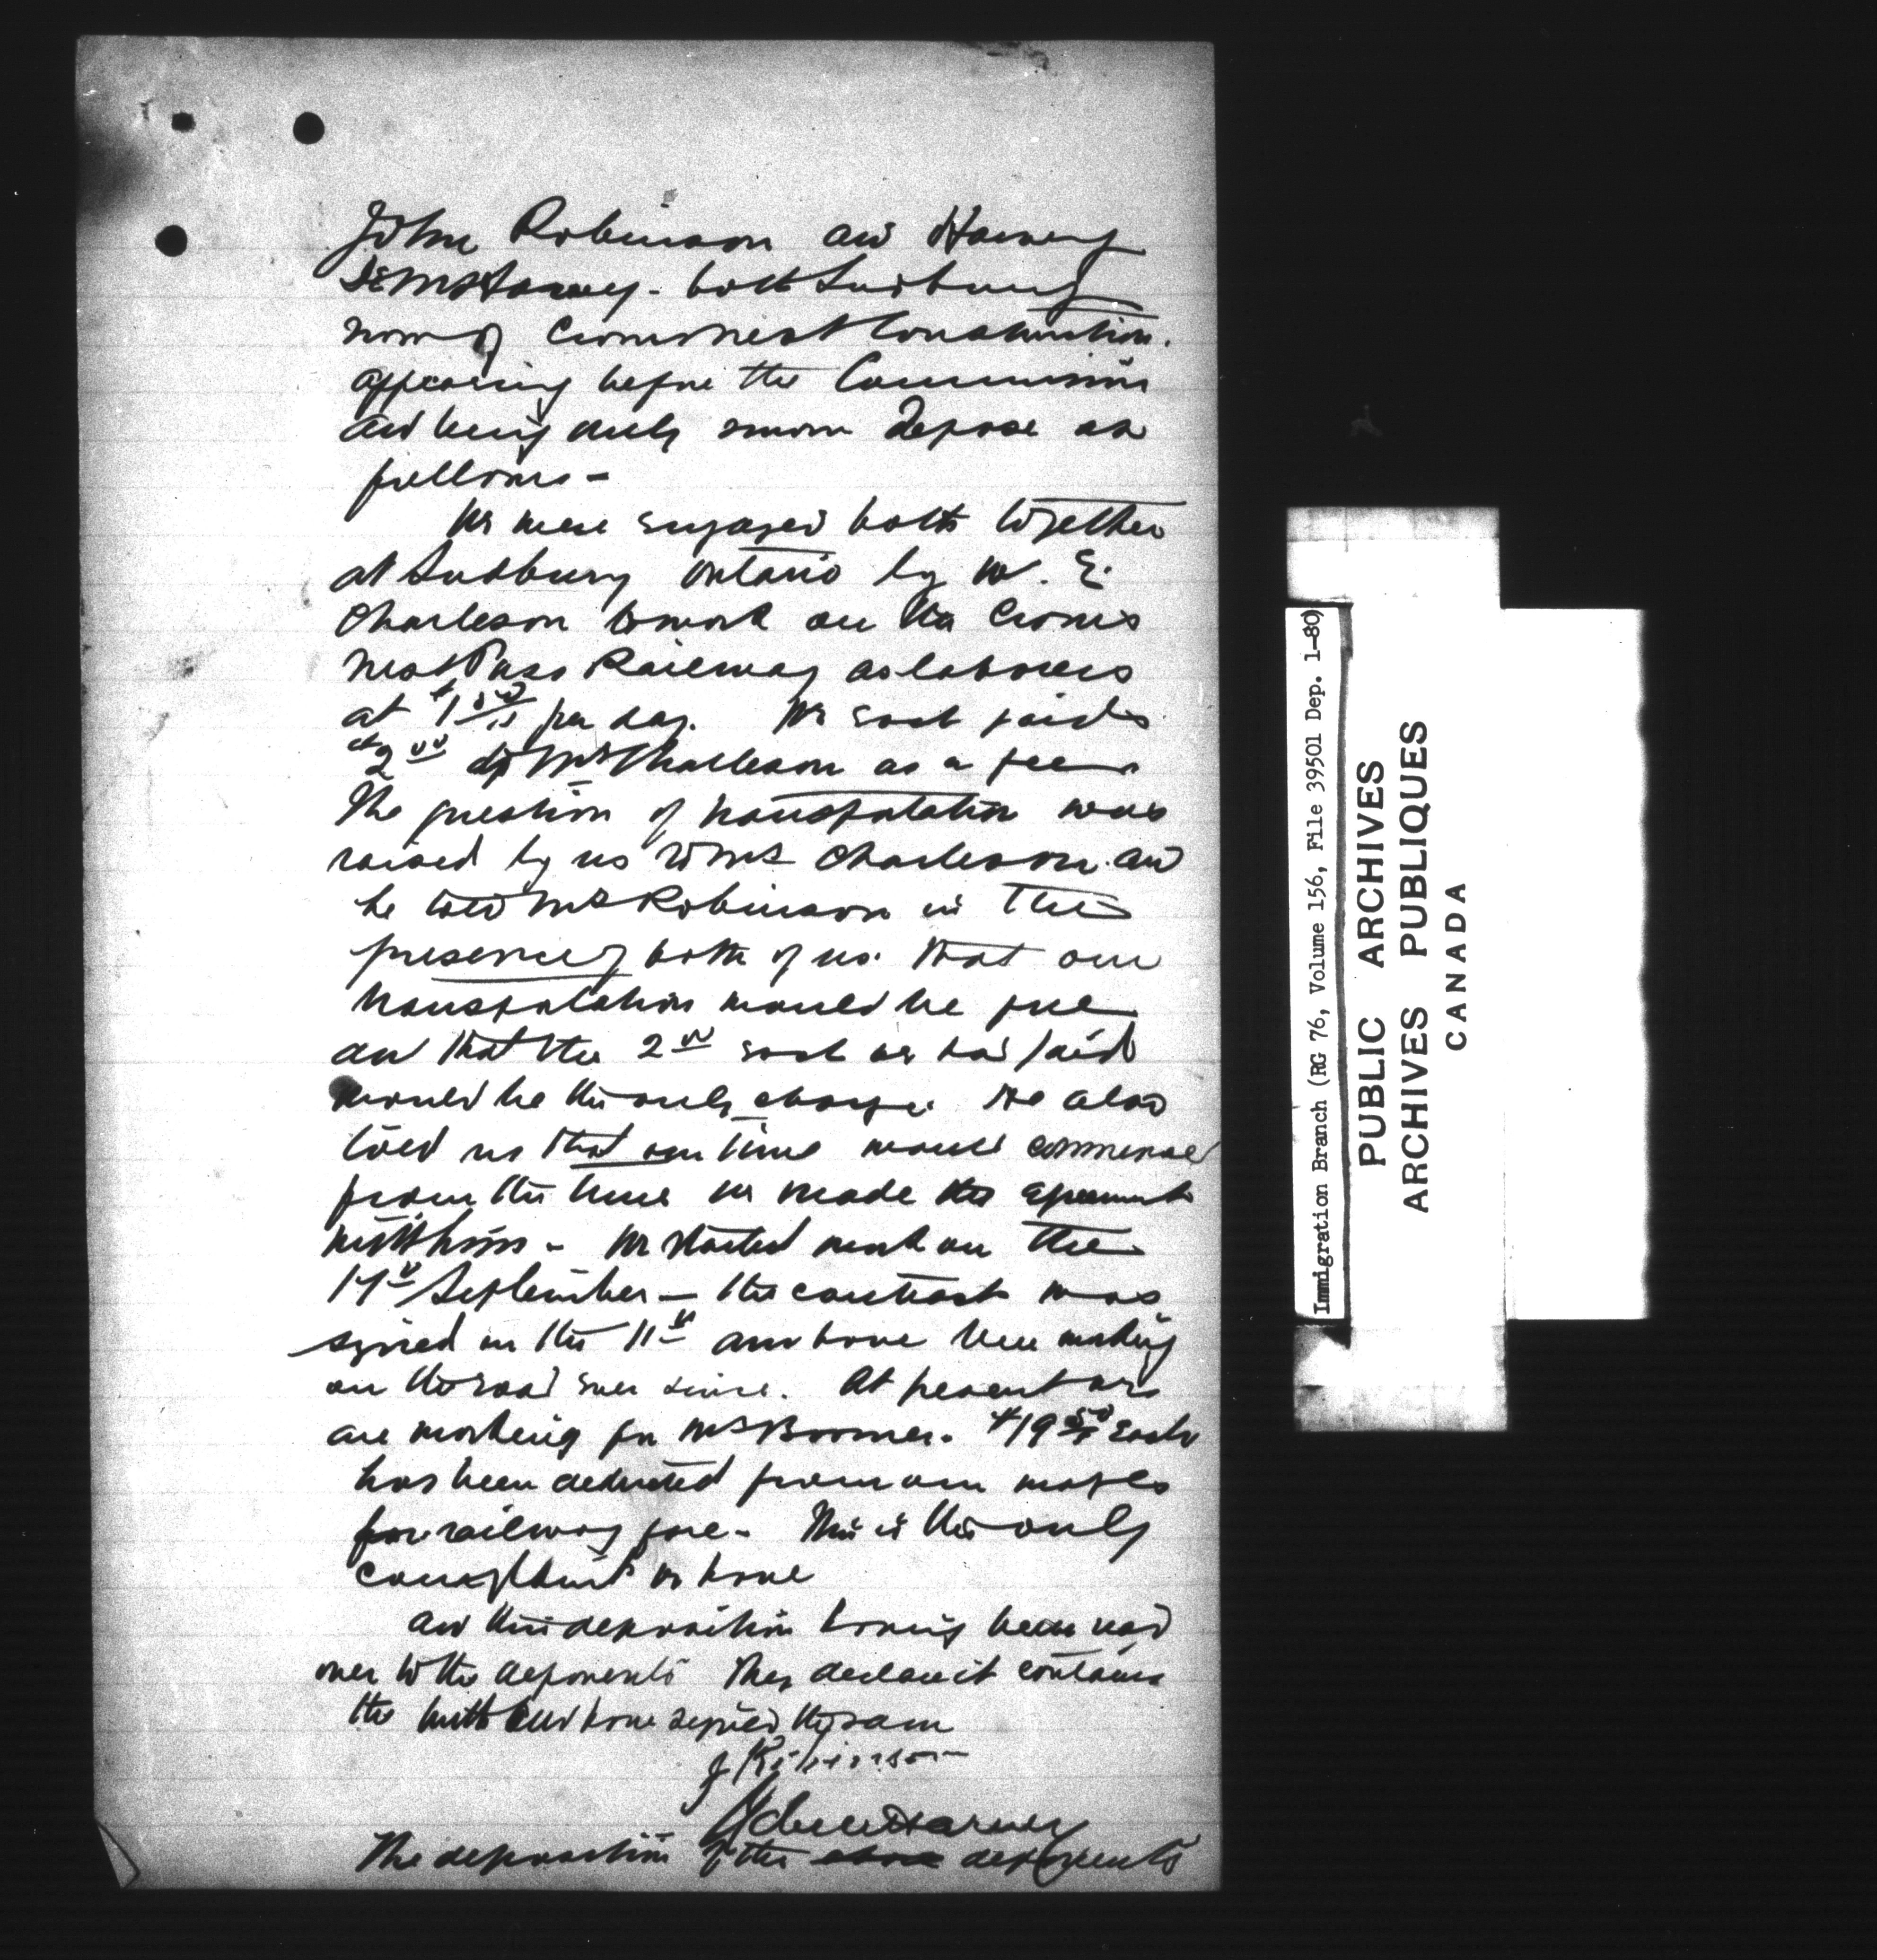 John Robinson and Harvey
both Sudbury
now of Crows Nest Construction.
appearing before the Commission
and being duly sworn Depose as
follows -
We were engaged both together
at Sudbury Ontario by W. E.
Charleson to work on the Crows
nest Pass Railway as laborers
at $1 50 per day. We each paid
$2 00 to Mr Charleson as a fee
The question of transportation was
raised by us to Mr Charleson and
he told Mr Robinson in the
presence of both of us that our
transportation would be free
and that the 2 00 each we had paid
would be the only charge. He also
told us that our time would commence
from the time we made the agreement
with him - We started work on the
17th September — the contract was
signed on the 11th and have been working
on the road ever since. At present we
are working for Mr Boomer. $19 50 Each
has been deducted from our wages
for railway fare - This is the only
complaint we have
and this deposition having been read
over to the deponents they declare it contains
the truth and have signed the same
J Robinson
Harvey
The deposition of the above deponents
Immigration Branch (RG 76, Volume 156, File 39501 Dep. 1-80)
PUBLIC ARCHIVES
ARCHIVES PUBLIQUES
CANADA